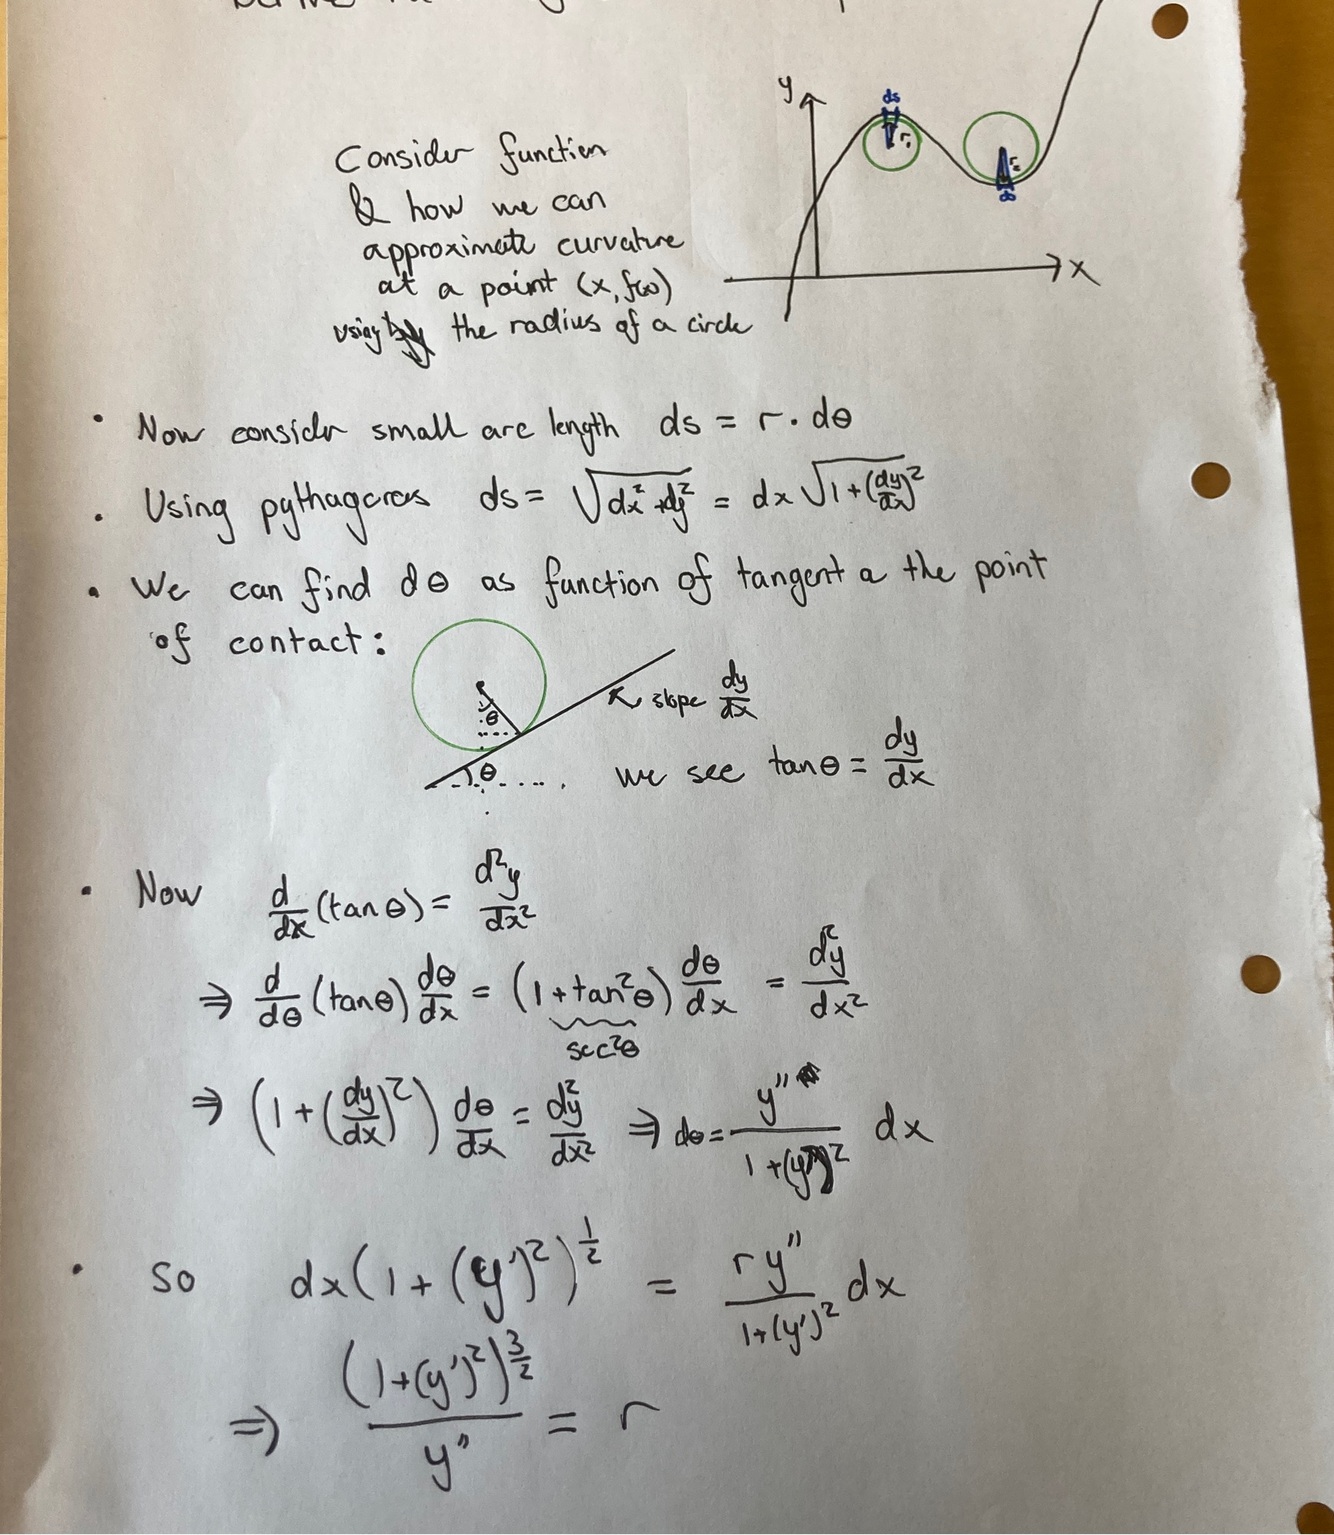 y
ds
r₁
r₂
ds
x
Consider function
& how we can
approximate curvature
at a point (x, f(x))
using the radius of a circle
• Now consider small arc length ds = r · dθ
• Using pythagoras ds = √(dx² + dy²) = dx √(1 + (dy/dx)²)
• We can find dθ as function of tangent a the point
of contact:
θ
slope dy/dx
θ
we see tanθ = dy/dx
• Now d/dx (tan θ) = d²y/dx²
⇒ d/dθ (tanθ) dθ/dx = (1 + tan²θ) dθ/dx = d²y/dx²
sec²θ
⇒ (1 + (dy/dx)²) dθ/dx = d²y/dx² ⇒ dθ = y''/(1 + (y')²) dx
• So dx (1 + (y')²)^(1/2) = r y''/(1 + (y')²) dx
⇒ (1 + (y')²)^(3/2) / y'' = r